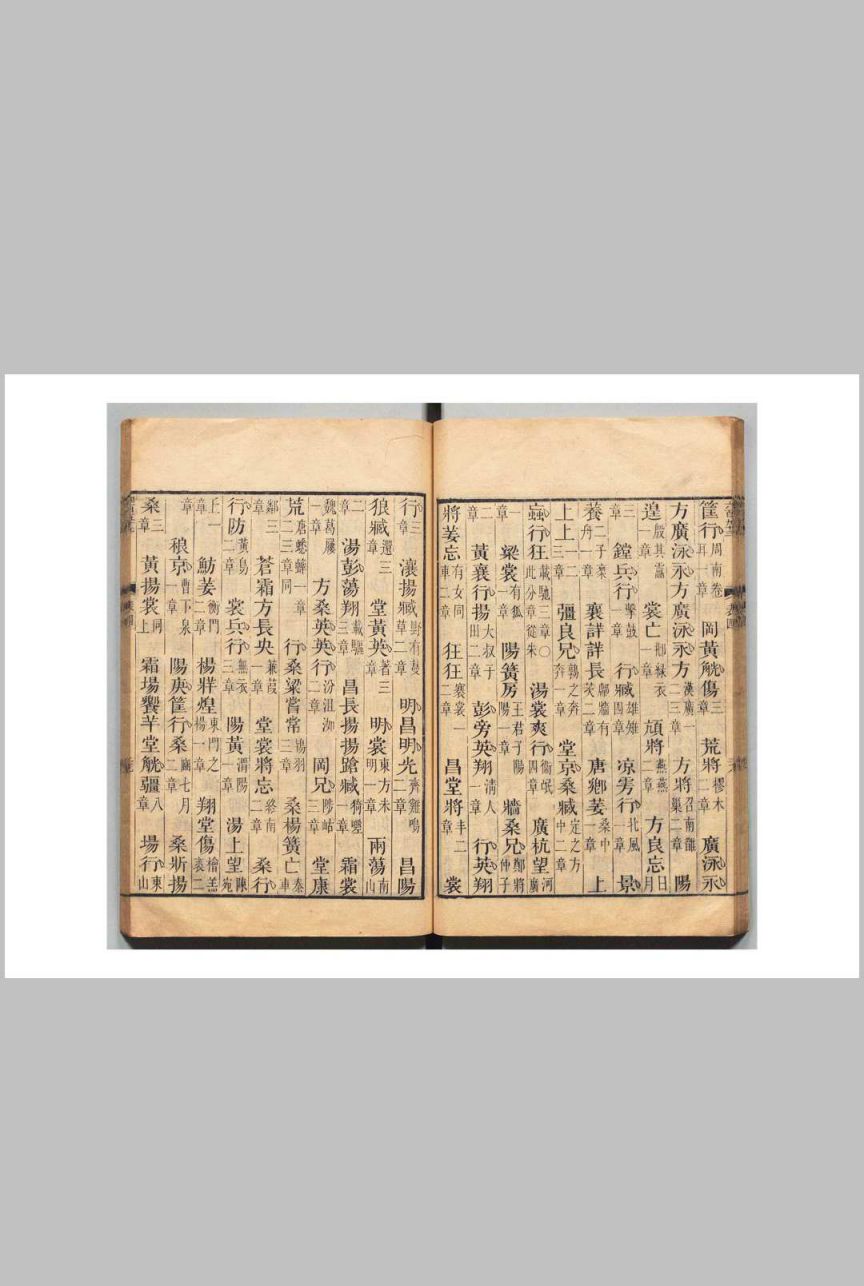 筐行周南卷耳一章 岡黃觥傷三章 荒將樛木二章 廣泳永
方廣泳永方廣泳永方漢廣一二三章 方將召南鵲巢二章 陽
遑殷其靁一章 裳亡邶綠衣一章 頏將燕燕二章 方良忘日月
三章 鏜兵行擊鼓一章 行臧雄雉四章 凉雱行北風一章 景
養二子乘舟一章 襄詳詳長鄘牆有茨二章 唐鄉姜桑中一章 上
上上一二三章 彊良兄鶉之奔奔一章 堂京桑臧定之方中二章
蝱行狂載馳三章○此分章從朱 湯裳爽行衞氓四章 廣杭望河廣
一章 梁裳有狐一章 陽簧房王君子陽陽一章 牆桑兄鄭將仲子
二章 黃襄行揚大叔于田二章 彭旁英翔清人一章 行英翔
將姜忘有女同車二章 狂狂褰裳一二章 昌堂將丰二章 裳
行三章 瀼揚臧野有蔓草二章 明昌明光齊雞鳴二章 昌陽
狼臧還三章 堂黃英著三章 明裳東方未明一章 兩蕩南山
二章 湯彭蕩翔載驅三章 昌長揚揚蹌臧猗嗟一章 霜裳
魏葛屨一章 方桑英英行汾沮洳二章 岡兄陟岵三章 堂康
荒唐蟋蟀一二三章同 行桑梁嘗常鴇羽三章 桑楊簧亡秦車
鄰三章 蒼霜方長央蒹葭一章 堂裳將忘終南二章 桑行
行防黃鳥二章 裳兵行無衣三章 陽黃渭陽一章 湯上望陳宛
丘一章 魴姜衡門二章 楊牂煌東門之楊一章 翔堂傷檜羔裘二
章 稂京曹下泉一章 陽庚筐行桑豳七月二章 桑斨揚
桑三章 黃揚裳同上 霜場饗羊堂觥疆八章 場行東山